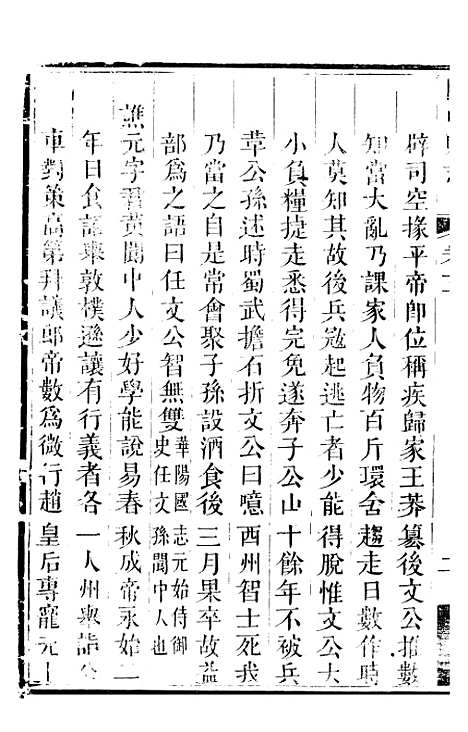 辟司空掾平帝即位稱疾歸家王莽篡後文公推數
知當大亂乃課家人負物百斤環舍趨走日數作時
人莫知其故後兵寇起逃亡者少能得脫惟文公大
小負糧捷走悉得完免遂奔子公山十餘年不被兵
革公孫述時蜀武擔石折文公曰噫西州智士死我
乃當之自是常會聚子孫設酒食後三月果卒故益
部為之語曰任文公智無雙華陽國志元始侍御史任文孫閬中人也
譙元字君黃閬中人少好學能說易春秋成帝永始二
年日食詔舉敦樸遜讓有行義者各一人州舉詣公
車對策高第拜議郎帝數為微行趙皇后專寵元上
二